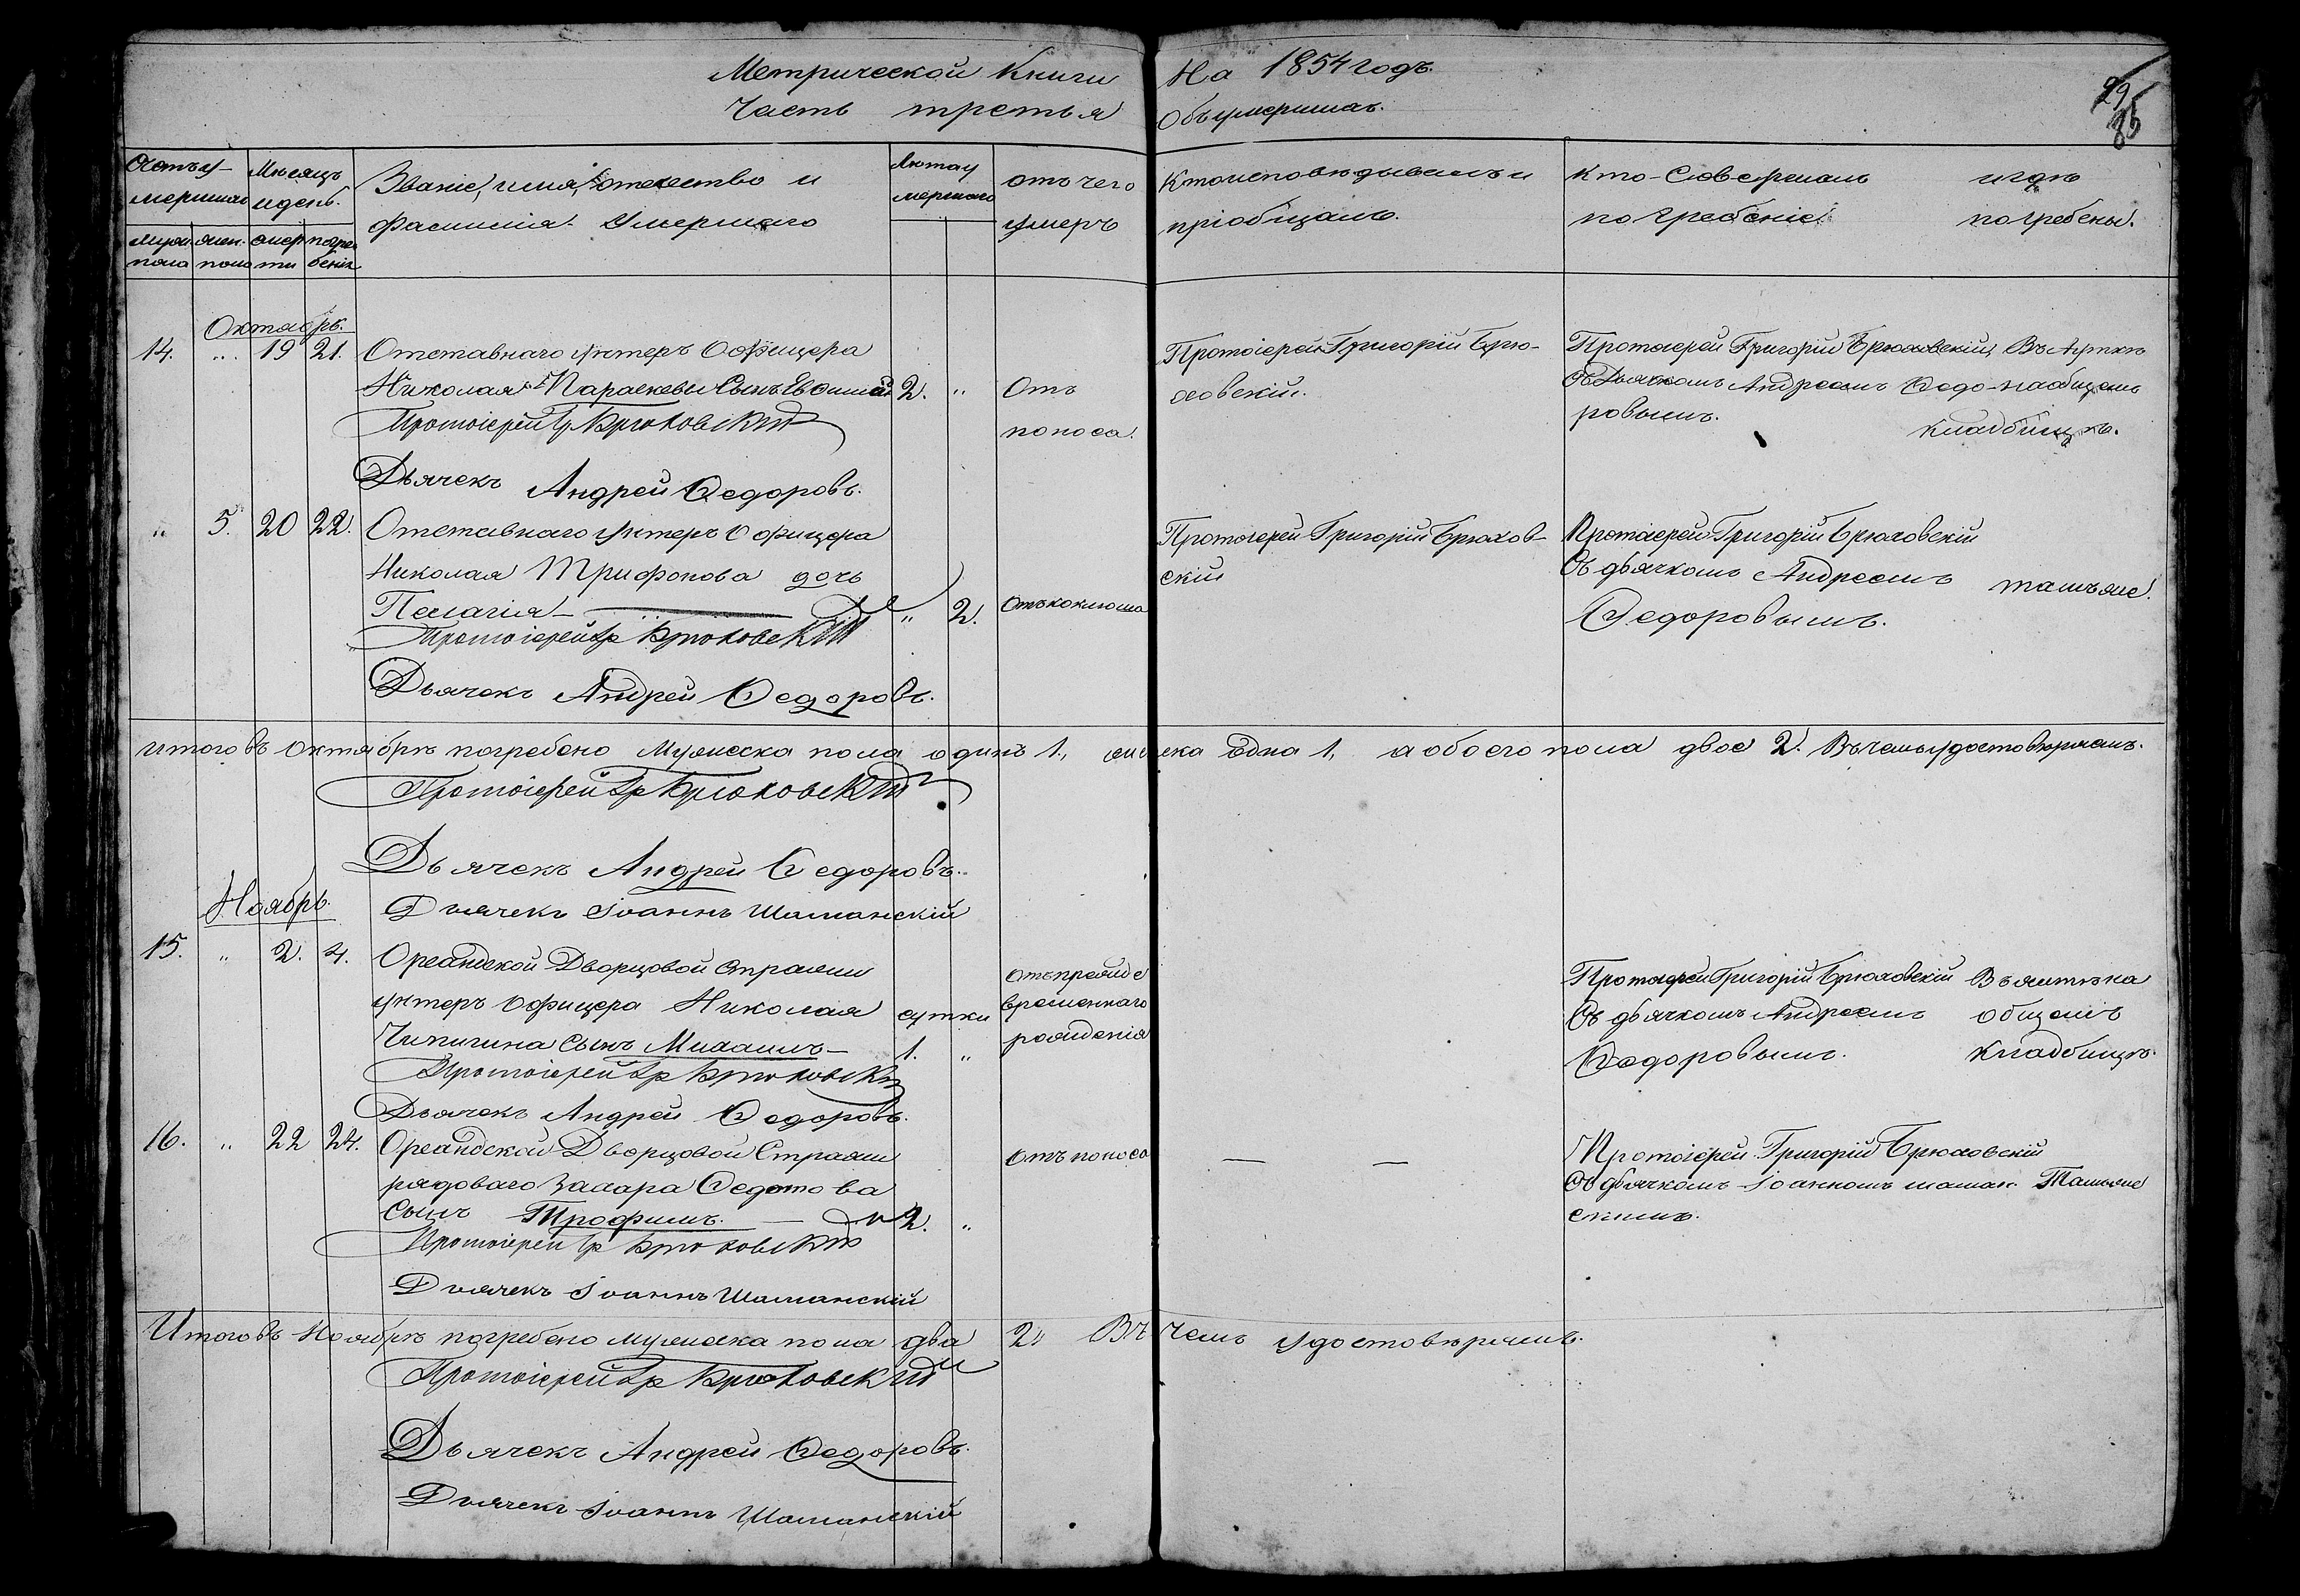 Метрической Книги На 1854 годъ.
Часть третья Объ умершихъ.
29
85
Счетъ у-
мершихъ
Муж. жен.
пола пола
Мѣсяцъ
и день.
смер погре
ти бенія
Званіе, имя, отечество и
фамилія Умершаго
Лѣта у
мершаго
отъ чего
умеръ
Кто исповѣдывалъ и
пріобщалъ.
Кто Совершалъ
погребеніе
и гдѣ
погребены.
Октябрь.
14. " 19 21. Отставнаго унтеръ Офицера
Николая Параскевы Сынъ 2. "
Протоіерей Гр Брюховскій
Дьячекъ Андрей Ѳедоровъ.
Отъ
поноса.
Протоіерей Григорій Брю-
ховскій.
Протоіерей Григорій Брюховскій
Съ Дьячкомъ Андреемъ Ѳедо-
ровымъ.
на общемъ
кладбищѣ.
" 5. 20 22. Отставнаго унтеръ Офицера
Николая Трифонова дочь
Пелагія " 2.
Протоіерей Гр Брюховскій
Дьячекъ Андрей Ѳедоровъ.
Отъ коклюша
Протоіерей Григорій Брюхов-
скій
Протоіерей Григорій Брюховскій
Съ дьячкомъ Андреемъ
Ѳедоровымъ.
тамъ же.
итого въ октябрѣ погребено Мужеска пола одинъ 1., женска одна 1, а обоего пола двое 2. Въ чемъ удостовѣряемъ.
Протоіерей Гр Брюховскій
Дьячекъ Андрей Ѳедоровъ.
Дьячекъ Іоаннъ Шаманскій
Ноябрь.
15. " 2. 4. Ореандской Дворцовой Стражи
унтеръ Офицера Николая
Чипигина сынъ Михаилъ
сутки
1. "
Протоіерей Гр Брюховскій
Дьячекъ Андрей Ѳедоровъ.
отъ прежде
временнаго
рожденія
Протоіерей Григорій Брюховскій
Съ дьячкомъ Андреемъ
Ѳедоровымъ.
В ялтѣ на
общемъ
кладбищѣ.
16. " 22 24. Ореандской Дворцовой Стражи
рядоваго Захара Ѳедотова
Сынъ Трофимъ. 2. "
Протоіерей Гр Брюховскій
Дьячекъ Іоаннъ Шаманскій
Отъ поноса
— —
Протоіерей Григорій Брюховскій
Съ дьячкомъ Іоанномъ шаман
скимъ.
Тамъ же
Итого въ Ноябрѣ погребено мужеска пола два 2. Въ чемъ удостовѣряемъ.
Протоіерей Гр Брюховскій
Дьячекъ Андрей Ѳедоровъ.
Дьячекъ Іоаннъ Шаманскій